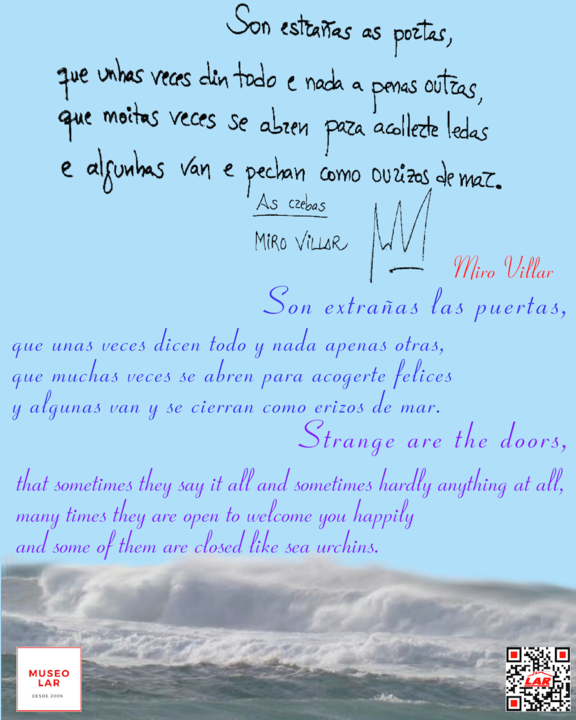 Son estrañas as portas,
que unhas veces din todo e nada a penas outras,
que moitas veces se abren para acollerte ledas
e algunhas van e pechan como ourizos de mar.
As crebas
MIRO VILLAR
Miro Villar
Son extrañas las puertas,
que unas veces dicen todo y nada apenas otras,
que muchas veces se abren para acogerte felices
y algunas van y se cierran como erizos de mar.
Strange are the doors,
that sometimes they say it all and sometimes hardly anything at all,
many times they are open to welcome you happily
and some of them are closed like sea urchins.
MUSEO
LAR
DESDE 2006
LAR